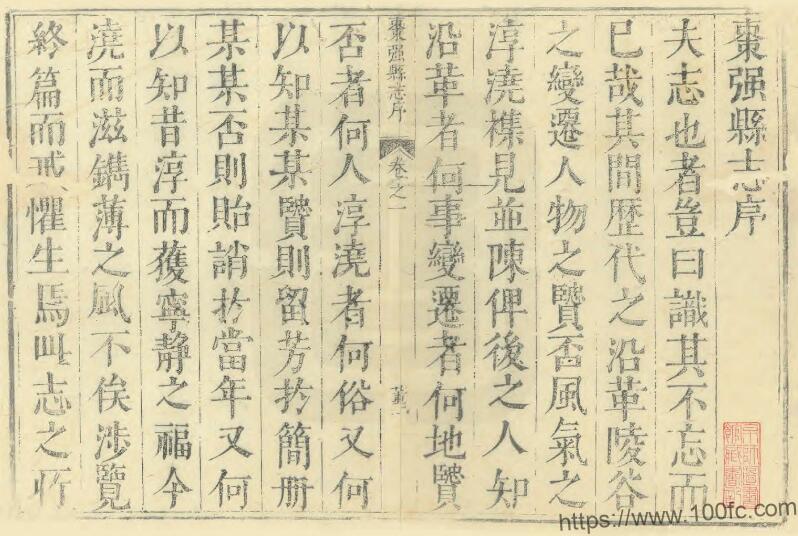 棗强縣志序
夫志也者豈曰識其不忘而
已哉其間歴代之沿革陵谷
之變遷人物之贒否風氣之
淳澆襍見並陳俾後之人知
沿革者何事變遷者何地贒
棗强縣志序 卷之一
否者何人淳澆者何俗又何
以知某某贒則留芳扵簡册
某某否則貽誚扵當年又何
以知昔淳而獲寧静之福今
澆而滋鐫薄之風不俟涉覽
終篇而戒懼生焉此志之所
https://www.100fc.com